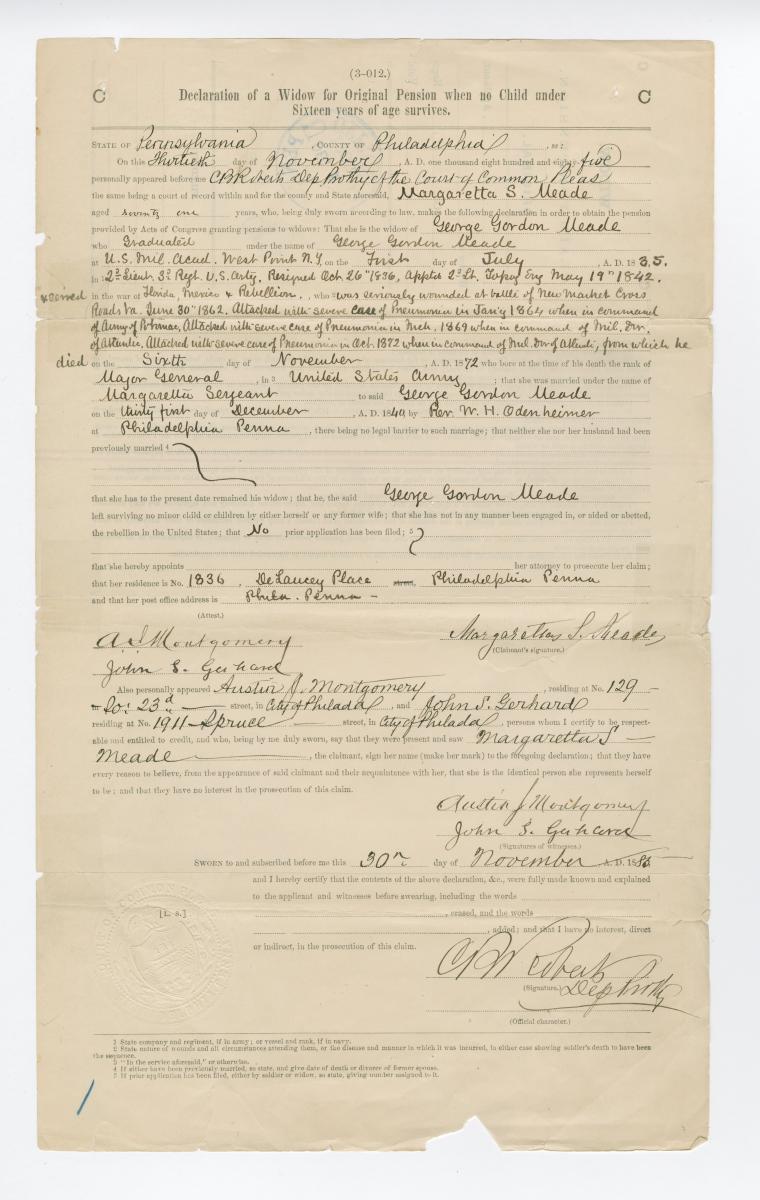 (3-012.)
C Declaration of a Widow for Original Pension when no Child under C
Sixteen years of age survives.
STATE OF Pennsylvania, COUNTY OF Philadelphia, ss:
On this Thirtieth day of November, A. D. one thousand eight hundred and eighty-five
personally appeared before me Dep Prothy of the Court of Common Pleas
the same being a court of record within and for the county and State aforesaid, Margaretta S. Meade
aged seventy one years, who, being duly sworn according to law, makes the following declaration in order to obtain the pension
provided by Acts of Congress granting pensions to widows: That she is the widow of George Gordon Meade
who Graduated under the name of George Gordon Meade
at U.S. Mil. Acad. West Point N.Y. on the First day of July A. D. 1835.
in 2d Lieut. 3d Regt. U.S. Arty. Resigned Oct. 26th 1836, Apptd 2d Lt. Topog Eng May 19th 1842.
& served in the war of Florida, Mexico & Rebellion., who was seriously wounded at battle of New Market Cross
Roads Va. June 30th 1862. Attacked with severe case of Pneumonia in Jan'y 1864 when in command
of Army of Potomac, Attacked with severe case of Pneumonia in Mch. 1869 when in command of Mil. Div.
of Atlantic. Attacked with severe case of Pneumonia in Oct. 1872 when in command of Mil. Div of Atlantic, from which he
died on the Sixth day of November, A. D. 1872 who bore at the time of his death the rank of
Major General, in 3 United States Army; that she was married under the name of
Margaretta Sergeant to said George Gordon Meade
on the thirty first day of December, A. D. 1840 by Rev. W. H. Odenheimer
at Philadelphia Penna, there being no legal barrier to such marriage; that neither she nor her husband had been
previously married 4
that she has to the present date remained his widow; that he, the said George Gordon Meade
left surviving no minor child or children by either herself or any former wife; that she has not in any manner been engaged in, or aided or abetted,
the rebellion in the United States; that No prior application has been filed; 5
that she hereby appoints her attorney to prosecute her claim;
that her residence is No. 1836, DeLancey Place street, Philadelphia Penna
and that her post office address is Phila. Penna -
(Attest.)
A J Montgomery Margaretta S. Meade
(Claimant's signature.)
John S. Gerhard
Also personally appeared Austin J. Montgomery, residing at No. 129
So: 23d street, in City of Philada, and John S. Gerhard
residing at No. 1911 Spruce street, in City of Philada, persons whom I certify to be respect-
able and entitled to credit, and who, being by me duly sworn, say that they were present and saw Margaretta S
Meade, the claimant, sign her name (make her mark) to the foregoing declaration; that they have
every reason to believe, from the appearance of said claimant and their acquaintance with her, that she is the identical person she represents herself
to be; and that they have no interest in the prosecution of this claim.
Austin J Montgomery
John S. Gerhard
(Signatures of witnesses.)
SWORN to and subscribed before me this 30th day of November A. D. 1885
and I hereby certify that the contents of the above declaration, &c., were fully made known and explained
to the applicant and witnesses before swearing, including the words
[L. S.] , erased, and the words
, added; and that I have no interest, direct
or indirect, in the prosecution of this claim.
(Signature.)
Dep Prothy
(Official character.)
1 State company and regiment, if in army; or vessel and rank, if in navy.
2 State nature of wounds and all circumstances attending them, or the disease and manner in which it was incurred, in either case showing soldier's death to have been
the sequence.
3 "In the service aforesaid," or otherwise.
4 If either have been previously married, so state, and give date of death or divorce of former spouse.
5 If prior application has been filed, either by soldier or widow, so state, giving number assigned to it.